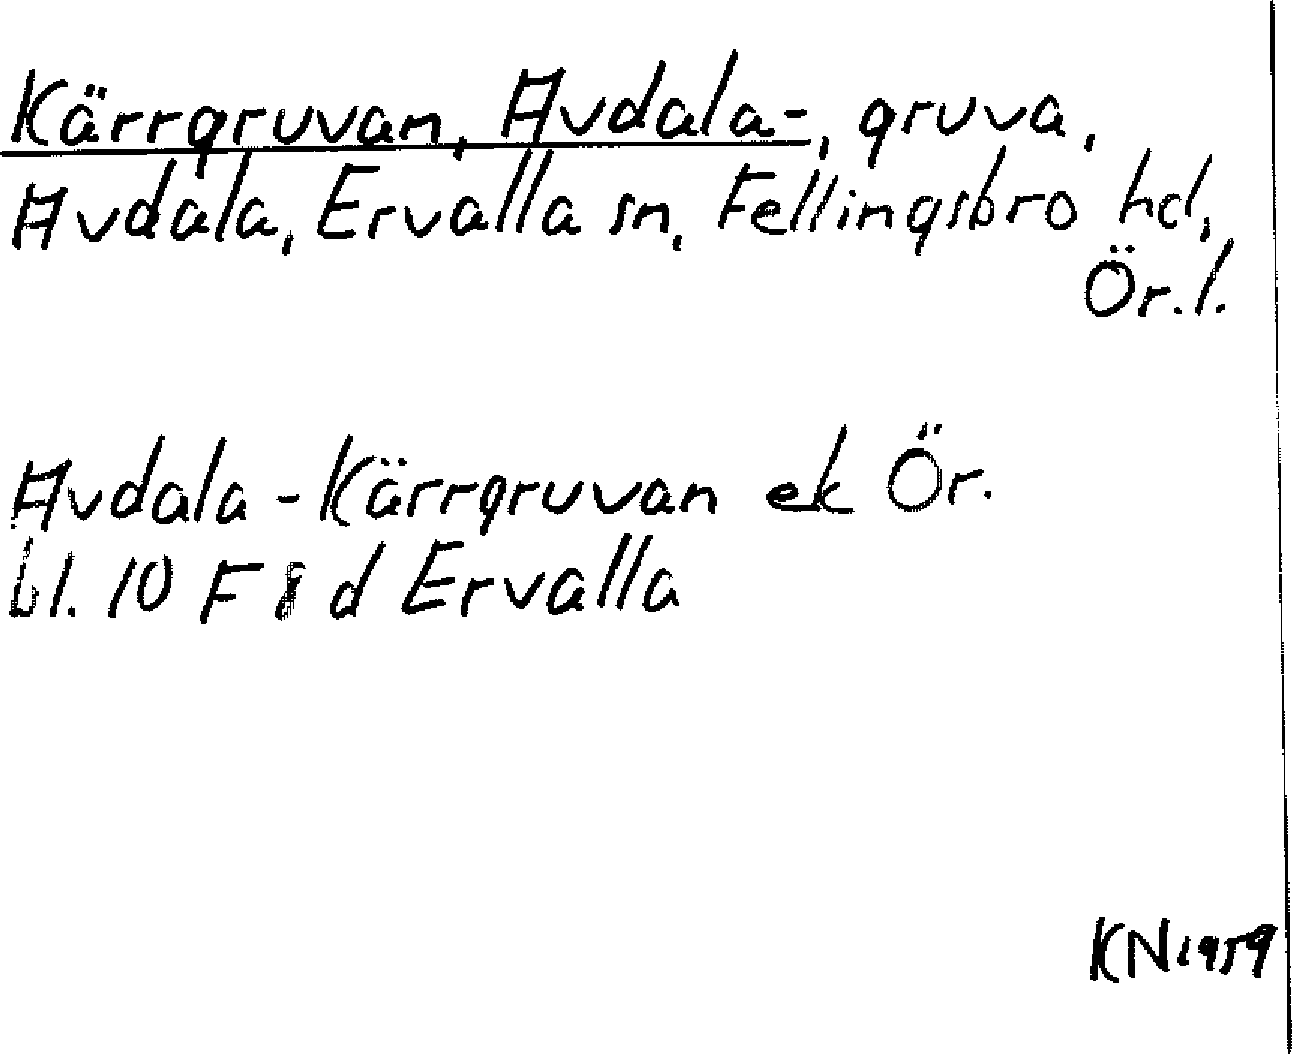 Kärrgruvan, Avdala-, gruva,
Avdala, Ervalla sn, Fellingsbro hd,
Ör.l.
Avdala-Kärrgruvan ek Ör.
bl. 10 F 8 d Ervalla
KN 1959